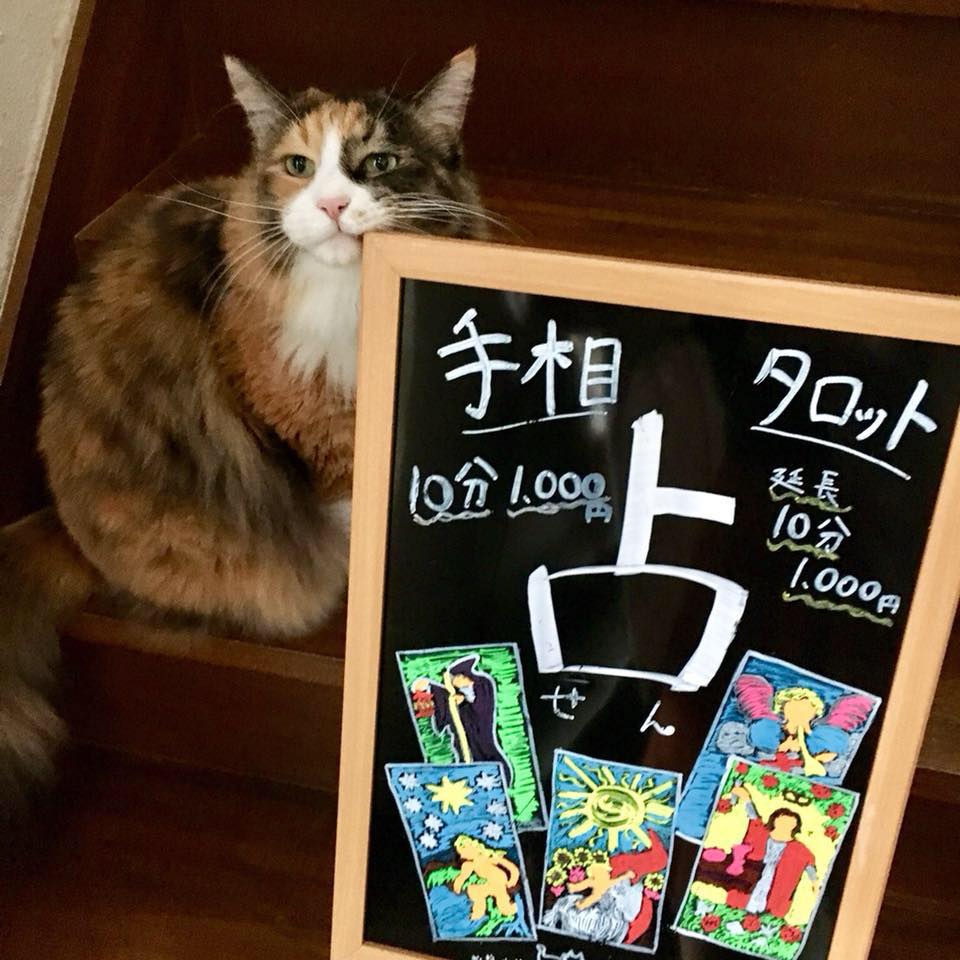 手相
10分 1.000円
タロット
延長
10分
1.000円
占
ぜん